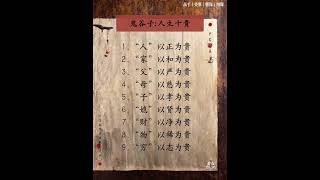 鬼谷子:人生十貴
1、“人”以正为贵
2、“家”以和为贵
3、“父”以严为贵
4、“母”以慈为贵
5、“子”以孝为贵
6、“媳”以贤为贵
7、“财”以净为贵
8、“物”以稀为贵
9、“穷”以志为贵